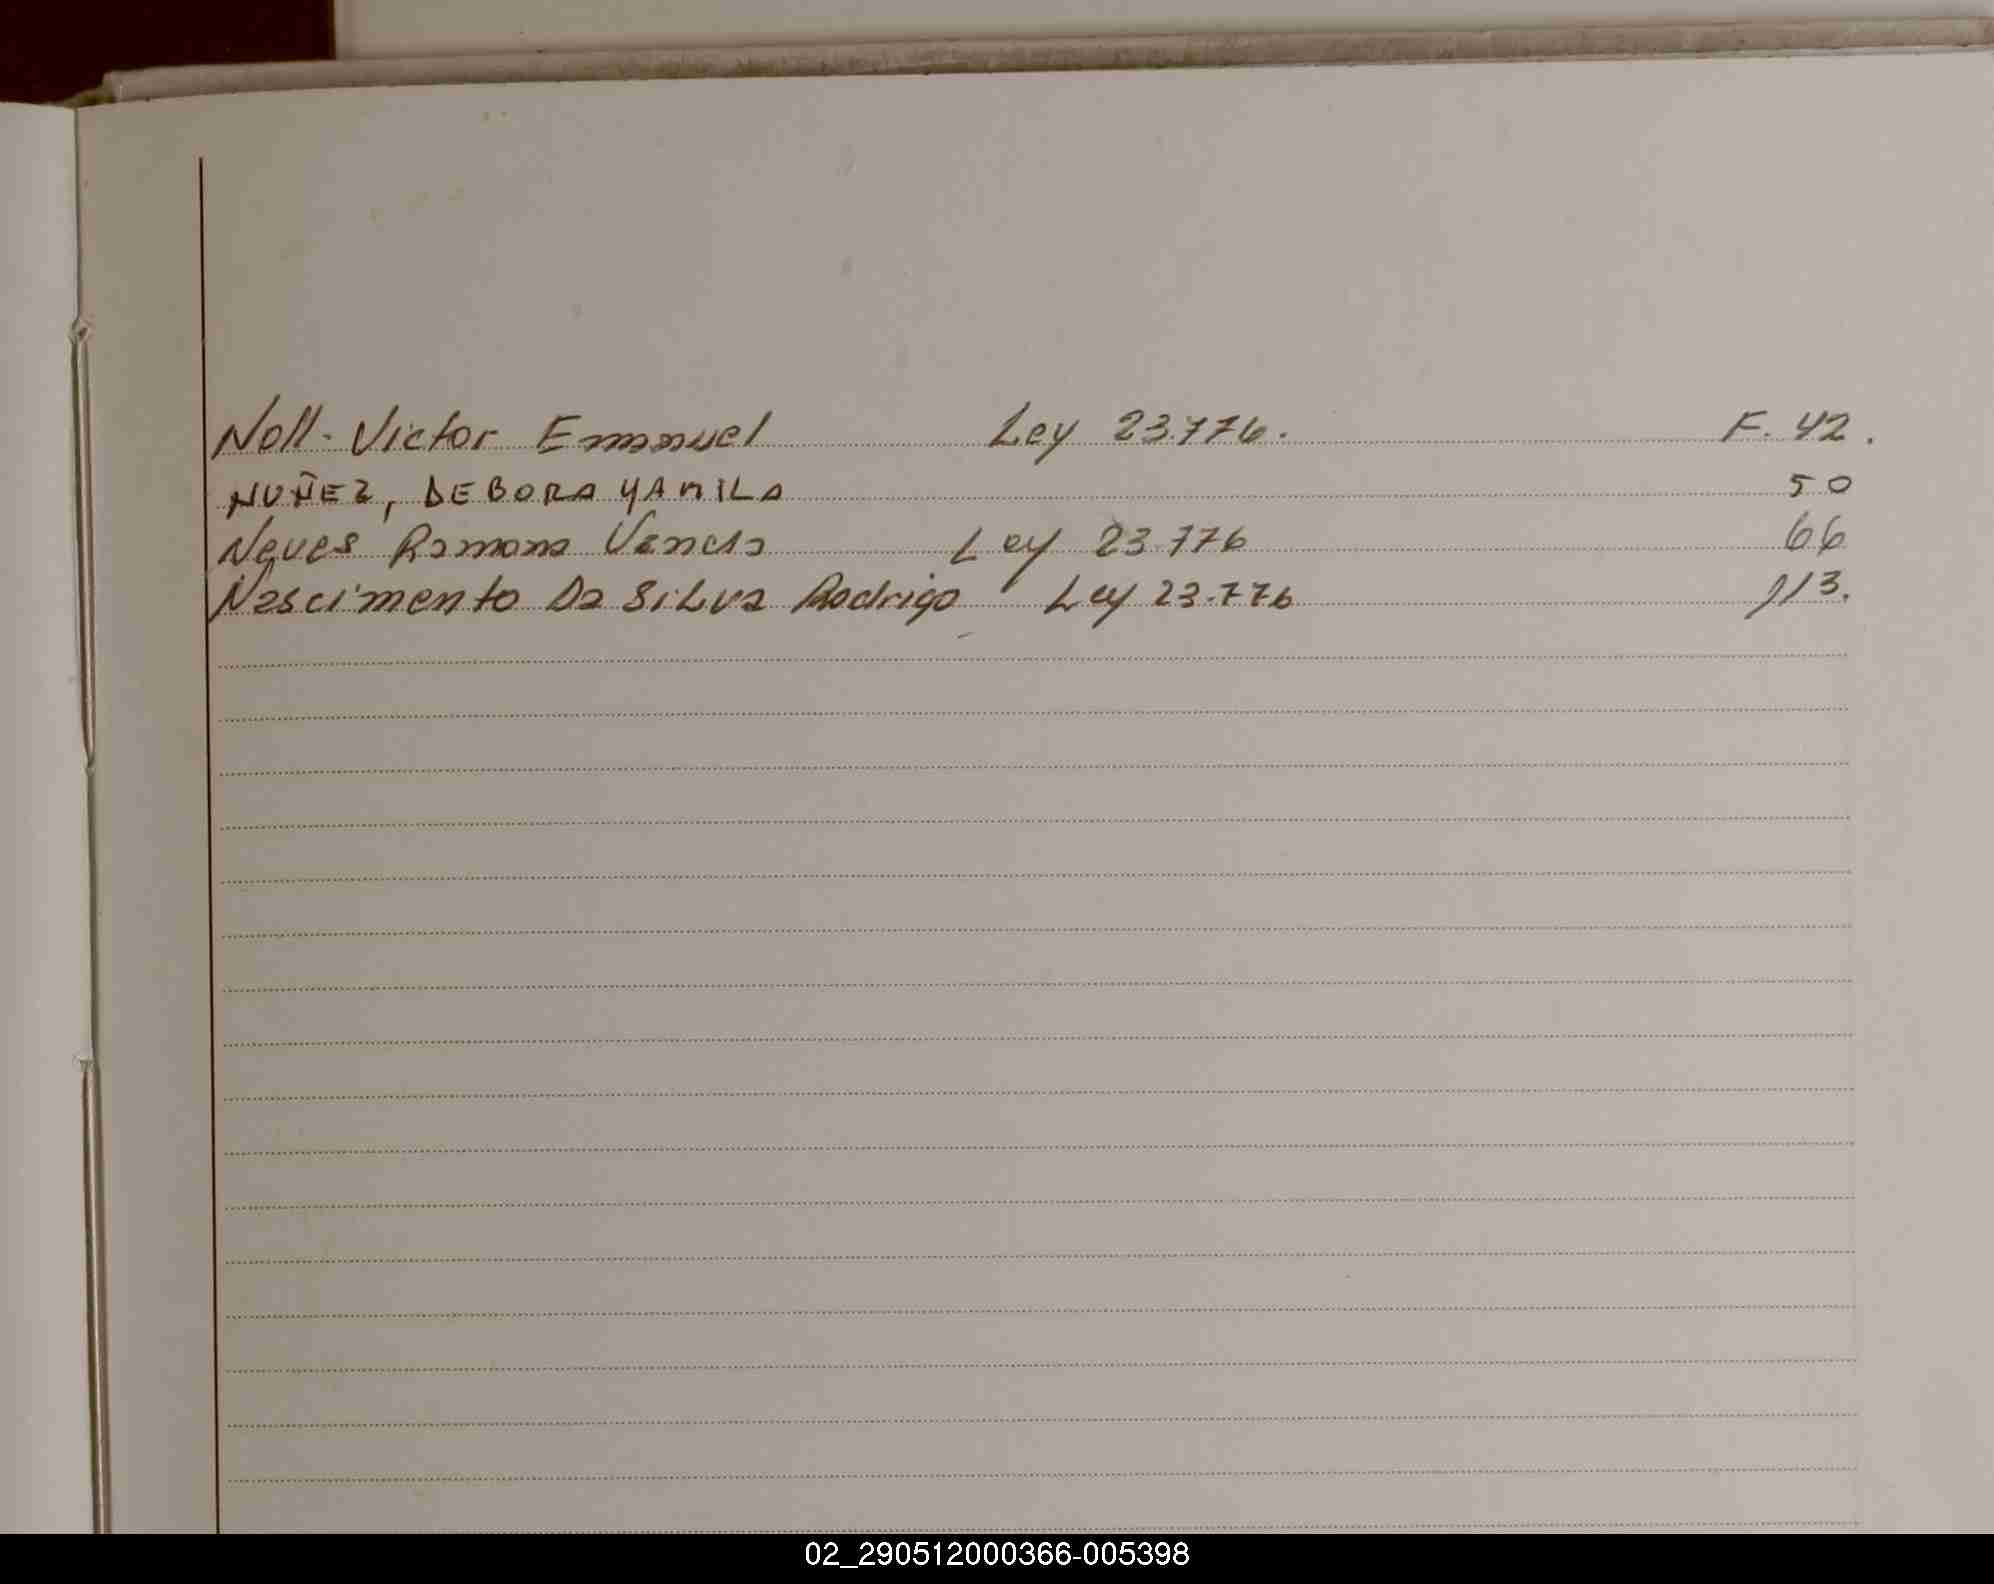 Noll. Victor Emanuel Ley 23.776. F. 42.
NUÑEZ, DEBORA YAMILA 50
Neves Ramona Ley 23.776 66
Nascimento Da Silva Rodrigo Ley 23.776 113.
02_290512000366-005398